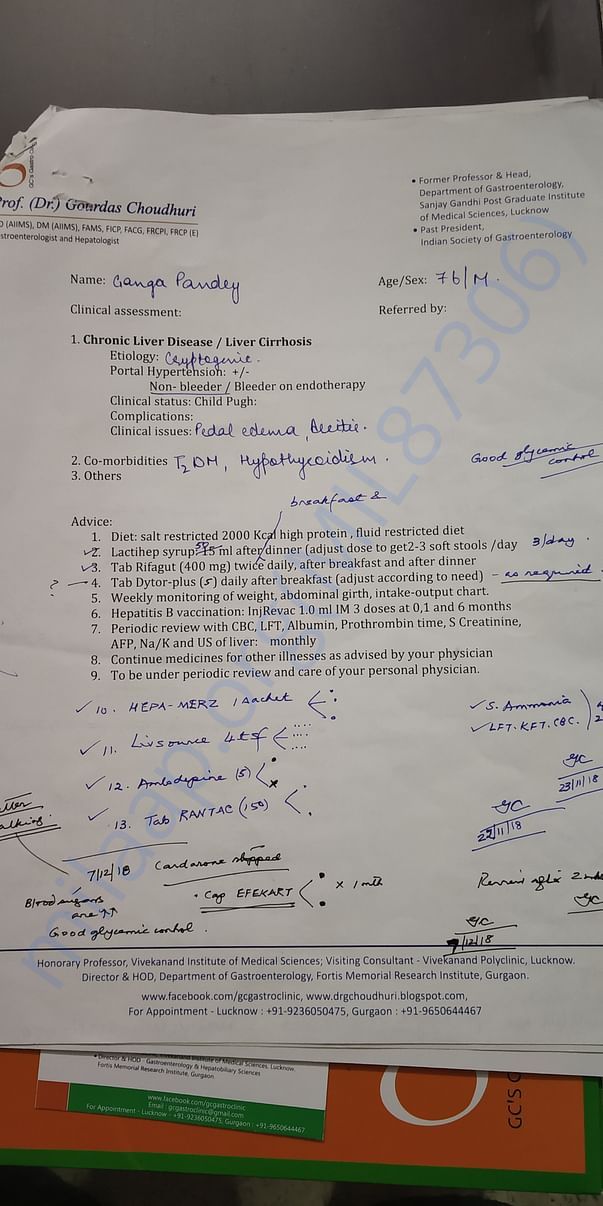 GC's Gastro
Prof. (Dr.) Gourdas Choudhuri
D (AIIMS), DM (AIIMS), FAMS, FICP, FACG, FRCPI, FRCP (E)
stroenterologist and Hepatologist
• Former Professor & Head,
Department of Gastroenterology,
Sanjay Gandhi Post Graduate Institute
of Medical Sciences, Lucknow
• Past President,
Indian Society of Gastroenterology
Name: Ganga Pandey
Age/Sex: 76/M.
Clinical assessment:
Referred by:
1. Chronic Liver Disease / Liver Cirrhosis
Etiology: Cryptogenic.
Portal Hypertension: +/-
Non- bleeder / Bleeder on endotherapy
Clinical status: Child Pugh:
Complications:
Clinical issues: Pedal edema,
2. Co-morbidities T2DM, Hypothyroidism.
Good glycemic control
3. Others
breakfast &
Advice:
1. Diet: salt restricted 2000 Kcal high protein , fluid restricted diet
✓2. Lactihep syrup: 15 ml after dinner (adjust dose to get2-3 soft stools /day 3/day.
✓3. Tab Rifagut (400 mg) twice daily, after breakfast and after dinner
? → 4. Tab Dytor-plus (5) daily after breakfast (adjust according to need) - as required.
5. Weekly monitoring of weight, abdominal girth, intake-output chart.
6. Hepatitis B vaccination: InjRevac 1.0 ml IM 3 doses at 0,1 and 6 months
7. Periodic review with CBC, LFT, Albumin, Prothrombin time, S Creatinine,
AFP, Na/K and US of liver: monthly
8. Continue medicines for other illnesses as advised by your physician
9. To be under periodic review and care of your personal physician.
✓ 10. HEPA-MERZ 1 sachet
✓ S. Ammonia
✓ LFT. KFT. CBC.
✓ 11. Livsource 4tsf
✓ 12. Amlodepine (5)
GC
23/11/18
✓ 13. Tab RANTAC (150)
GC
22/11/18
7/12/18 Cardarone stopped
• Cap EFEKART x 1 mth
Blood sugars
are ↑↑
Good glycemic control.
GC
7/12/18
Honorary Professor, Vivekanand Institute of Medical Sciences; Visiting Consultant - Vivekanand Polyclinic, Lucknow.
Director & HOD, Department of Gastroenterology, Fortis Memorial Research Institute, Gurgaon.
www.facebook.com/gcgastroclinic, www.drgchoudhuri.blogspot.com,
For Appointment - Lucknow : +91-9236050475, Gurgaon : +91-9650644467
Vivekanand Institute of Medical Sciences, Lucknow.
• Director & HOD - Gastroenterology & Hepatobiliary Sciences
Fortis Memorial Research Institute, Gurgaon
www.facebook.com/gcgastroclinic
Email : gcgastroclinic@gmail.com
For Appointment - Lucknow : +91-9236050475, Gurgaon : +91-9650644467
GC'S